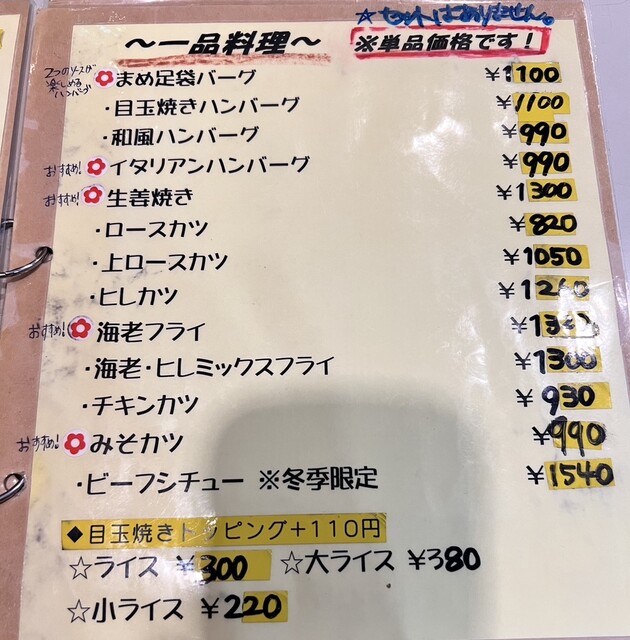 ☆セットはありません。
～一品料理～ ※単品価格です！
2つのソースが楽しめるハンバーグ まめ足袋バーグ ¥1100
・目玉焼きハンバーグ ¥1100
・和風ハンバーグ ¥990
おすすめ! イタリアンハンバーグ ¥990
おすすめ! 生姜焼き ¥1300
・ロースカツ ¥820
・上ロースカツ ¥1050
・ヒレカツ ¥1260
おすすめ! 海老フライ
・海老・ヒレミックスフライ ¥1300
・チキンカツ ¥930
おすすめ! みそカツ ¥990
・ビーフシチュー ※冬季限定 ¥1540
◆目玉焼きトッピング+110円
☆ライス ¥300 ☆大ライス ¥380
☆小ライス ¥220